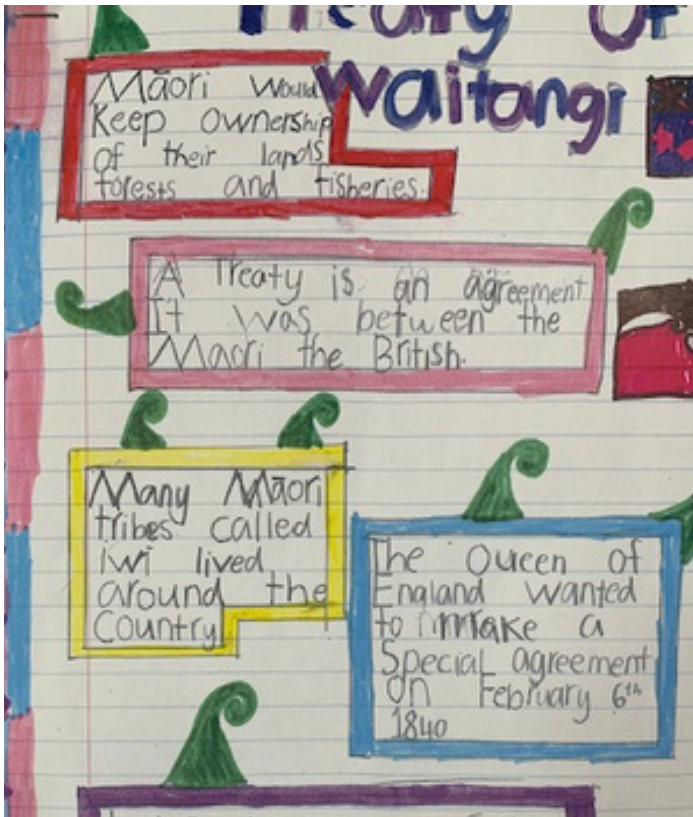 Treaty of
Waitangi
Māori would
Keep ownership
of their lands
forests and fisheries.
A Treaty is an agreement
It was between the
Maori the British.
Many Māori
tribes called
Iwi lived
around the
Country
The Queen of
England wanted
to make a
Special agreement
on February 6th
1840